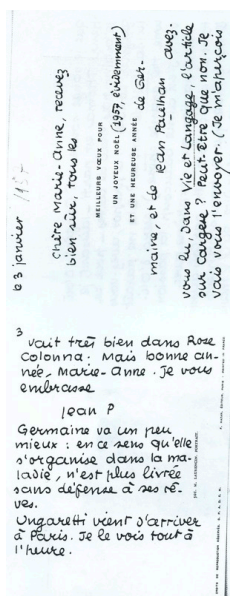 le 3 janvier
Chère Marie-Anne, recevez
bien sûr, tous les
MEILLEURS VŒUX POUR
UN JOYEUX NOËL (1957, évidemment)
ET UNE HEUREUSE ANNÉE
de Ger-
maine, et de Jean Paulhan avez-
vous lu, dans Vie et Langage, l'article
sur Cargèse ? Peut-être que non. Je
vais vous l'envoyer. (Je m'aperçois
3
vait très bien dans Rose
Colonna. Mais bonne an-
née, Marie-Anne. Je vous
embrasse
Jean P
Germaine va un peu
mieux : en ce sens qu'elle
s'organise dans la ma-
ladie, n'est plus livrée
sans défense à ses rê-
ves.
Ungaretti vient d'arriver
à Paris. Je le vois tout à
l'heure.